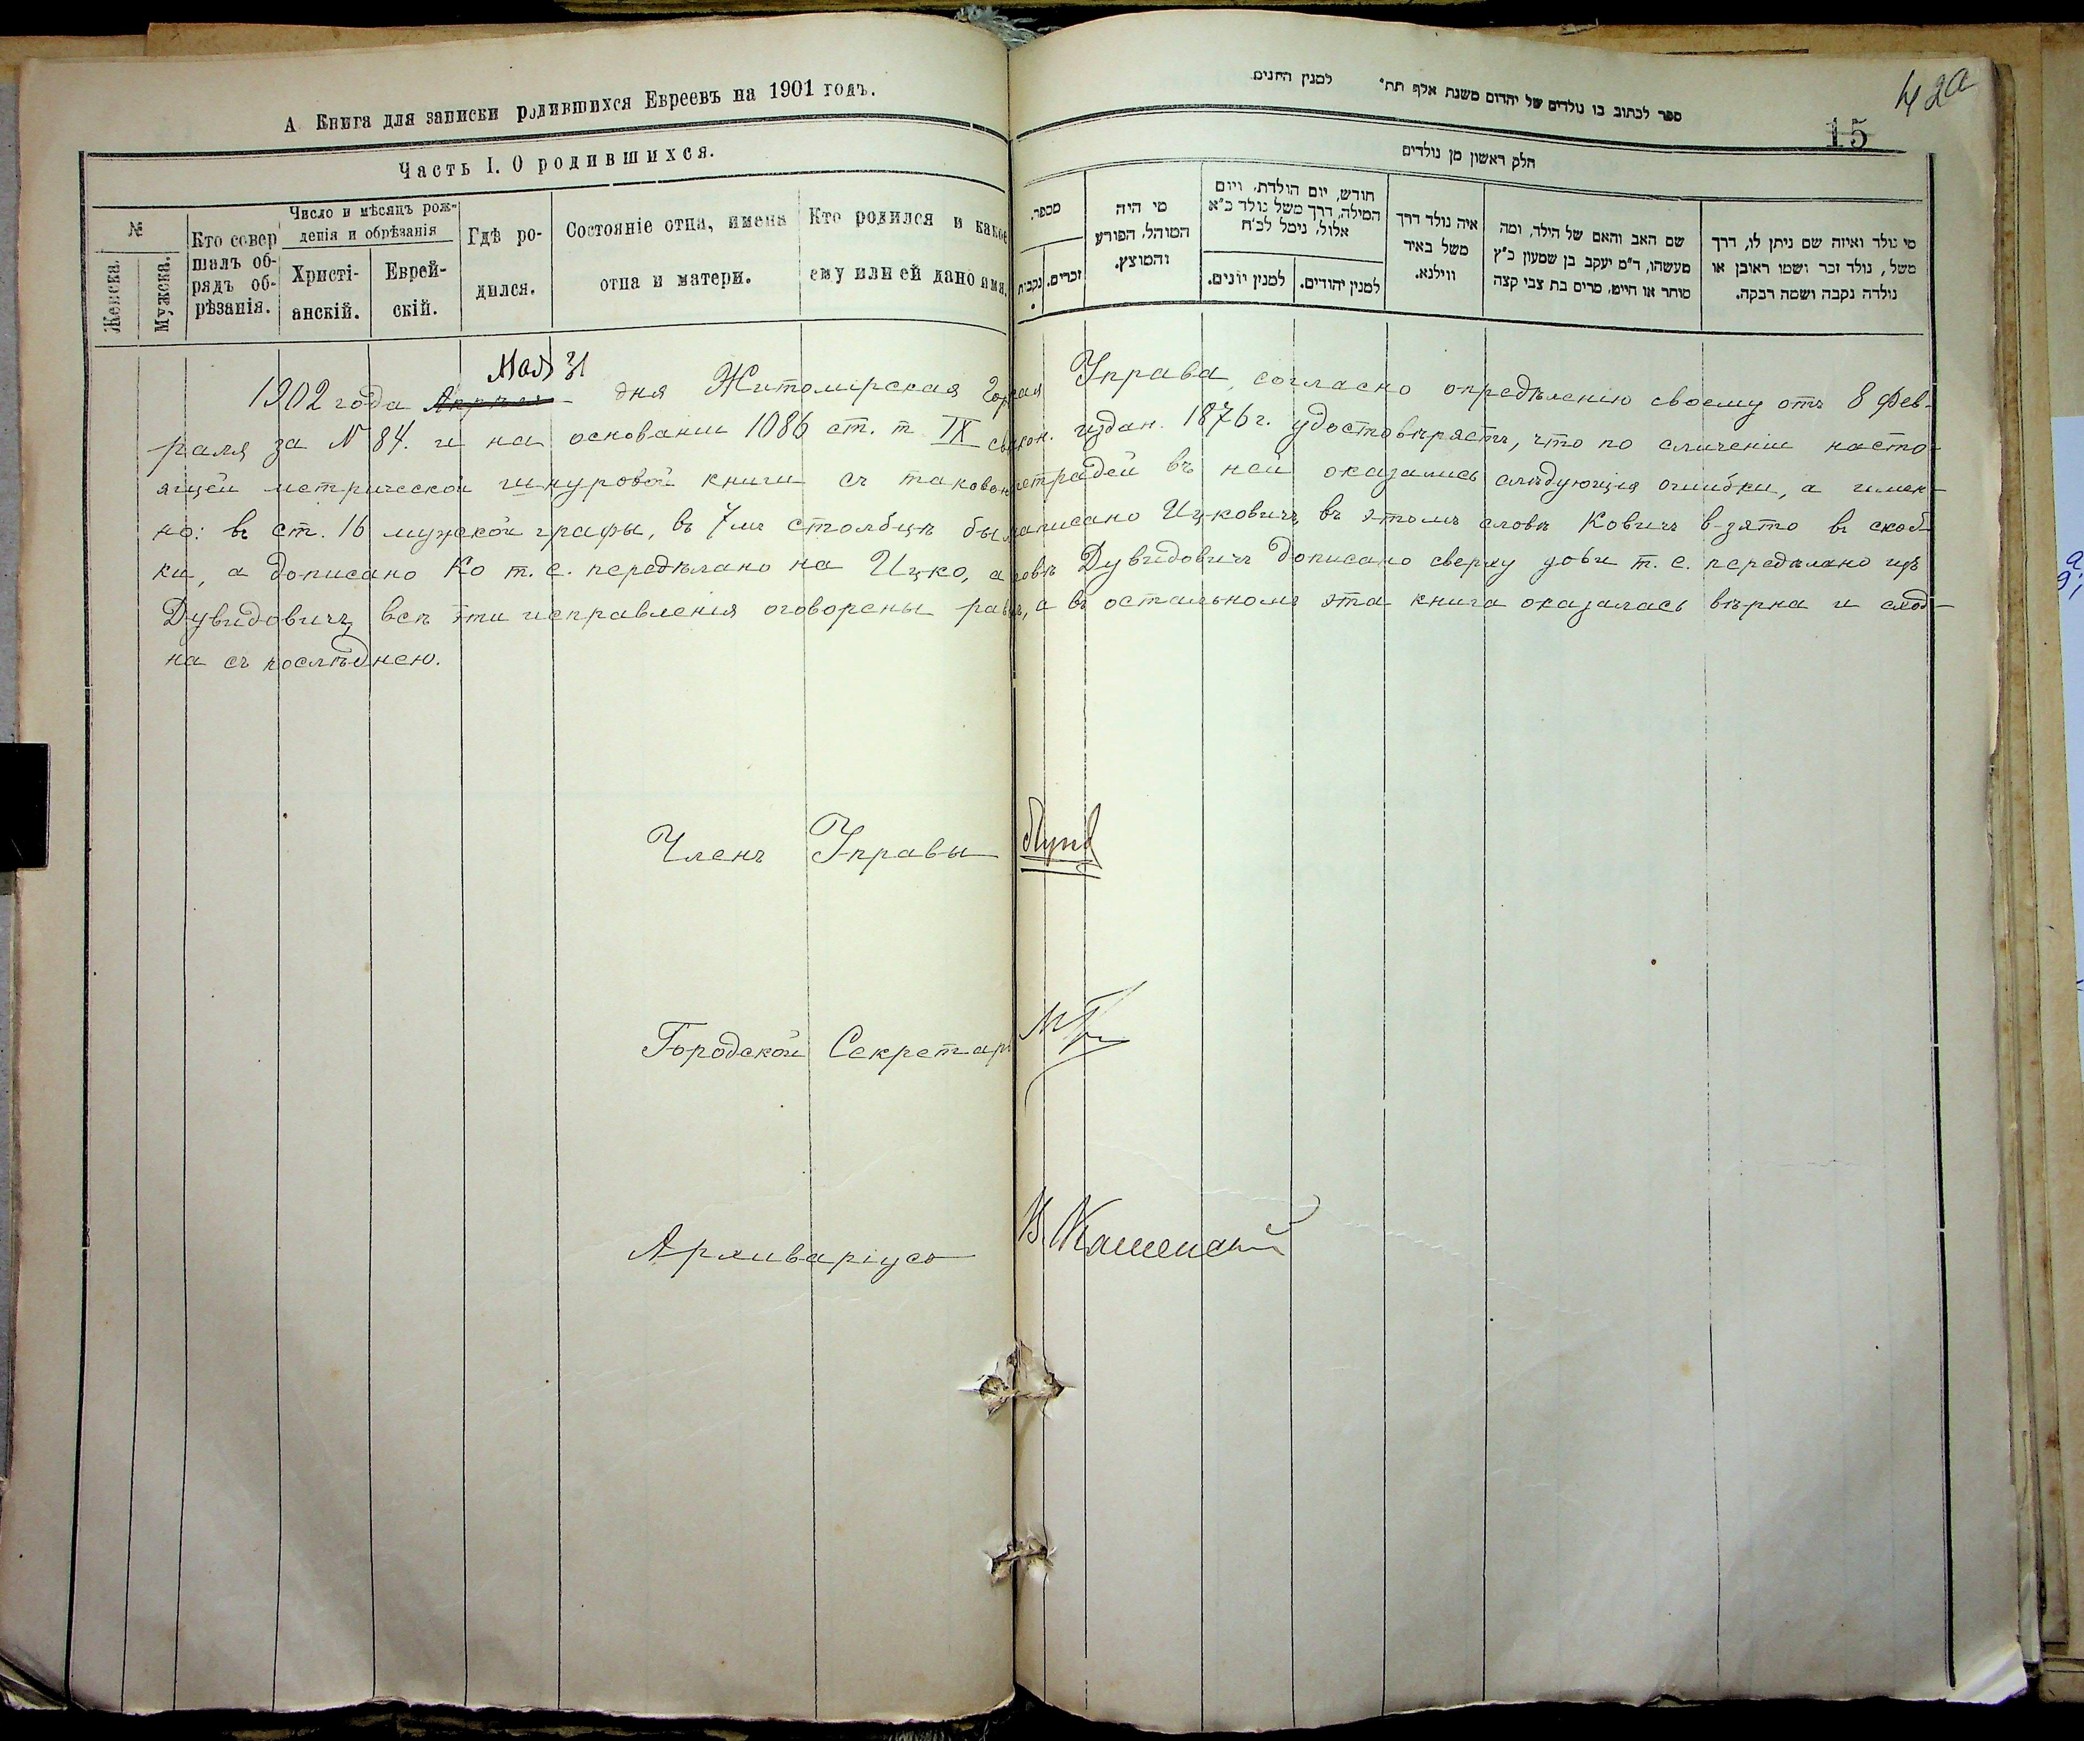 А Книга для записки родившихся Евреевъ на 1901 годъ.
Часть I. О родившихся.
№
Женска.
Мужска.
Кто совер
шалъ об-
рядъ об-
рѣзанія.
Число и мѣсяцъ рож-
денія и обрѣзанія
Христі-
анскій.
Еврей-
скій.
Гдѣ ро-
дился.
Состояніе отца, имена
отца и матери.
Кто родился и какое
ему или ей дано имя.
ספר לכתוב בו נולדים של יהדום משנת אלף תת' למנין החנים
42а
15
חלק ראשון מן נולדים
מספר.
נקבות
זכרים.
מי היה
המוהל, הפורע
והמוצץ.
חודש, יום הולדת, ויום
המילה, דרך משל נולד כ"א
אלול, נימל לכ"ח
למנין יונים.
למנין יהודים.
איה נולד דרך
משל באיר
ווילנא.
שם האב והאם של הילד, ומה
מעשהו, ד"מ יעקב בן שמעון כ"ץ
סוחר או חייט, מרים בת צבי קצה
מי נולד ואיזה שם ניתן לו, דרך
משל, נולד זכר ושמו ראובן או
נולדה נקבה ושמה רבקה.
Мая 31
1902 года Апрѣля дня Житомірская Управа, согласно опредѣленію своему отъ 8 Фев-
раля за № 84. и на основаніи 1086 ст. т IX издан. 1876 г. удостовѣряетъ, что по сличеніи насто-
ящей метрической шнуровой книги съ таковою тетрадей въ ней оказались слѣдующія ошибки, а имен-
но: въ ст. 16 мужской графы, въ 7мъ столбцѣ написано Ицковичъ, въ этомъ словѣ Ковичъ взято въ скоб-
ки, а дописано Ко т. е. передѣлано на Ицко, а Дувидовичъ дописано сверху т. е. передѣлано изъ
Дувидовичъ, всѣ эти исправленія оговорены а въ остальномъ эта книга оказалась вѣрна и сход-
на съ послѣднею.
Членъ Управы
Городской Секретарь
Архиваріусъ